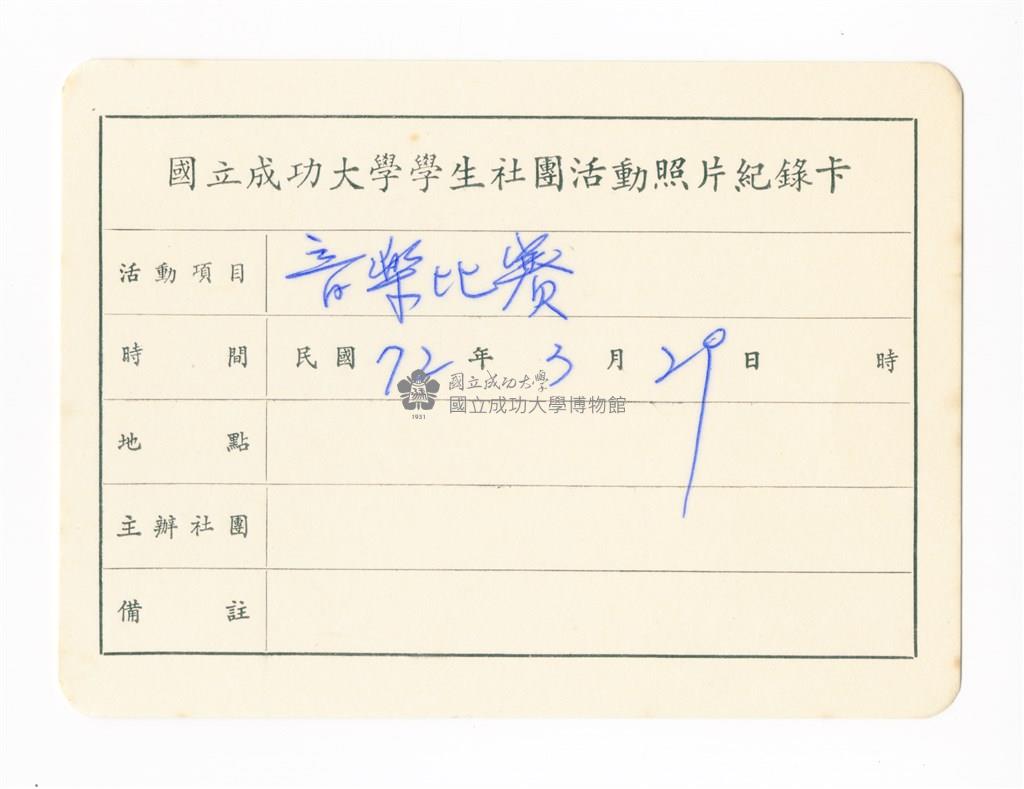 國立成功大學學生社團活動照片紀錄卡
活動項目 音樂比賽
時間 民國 72 年 3 月 29 日 時
國立成功大學
國立成功大學博物館
1931
地點
主辦社團
備註